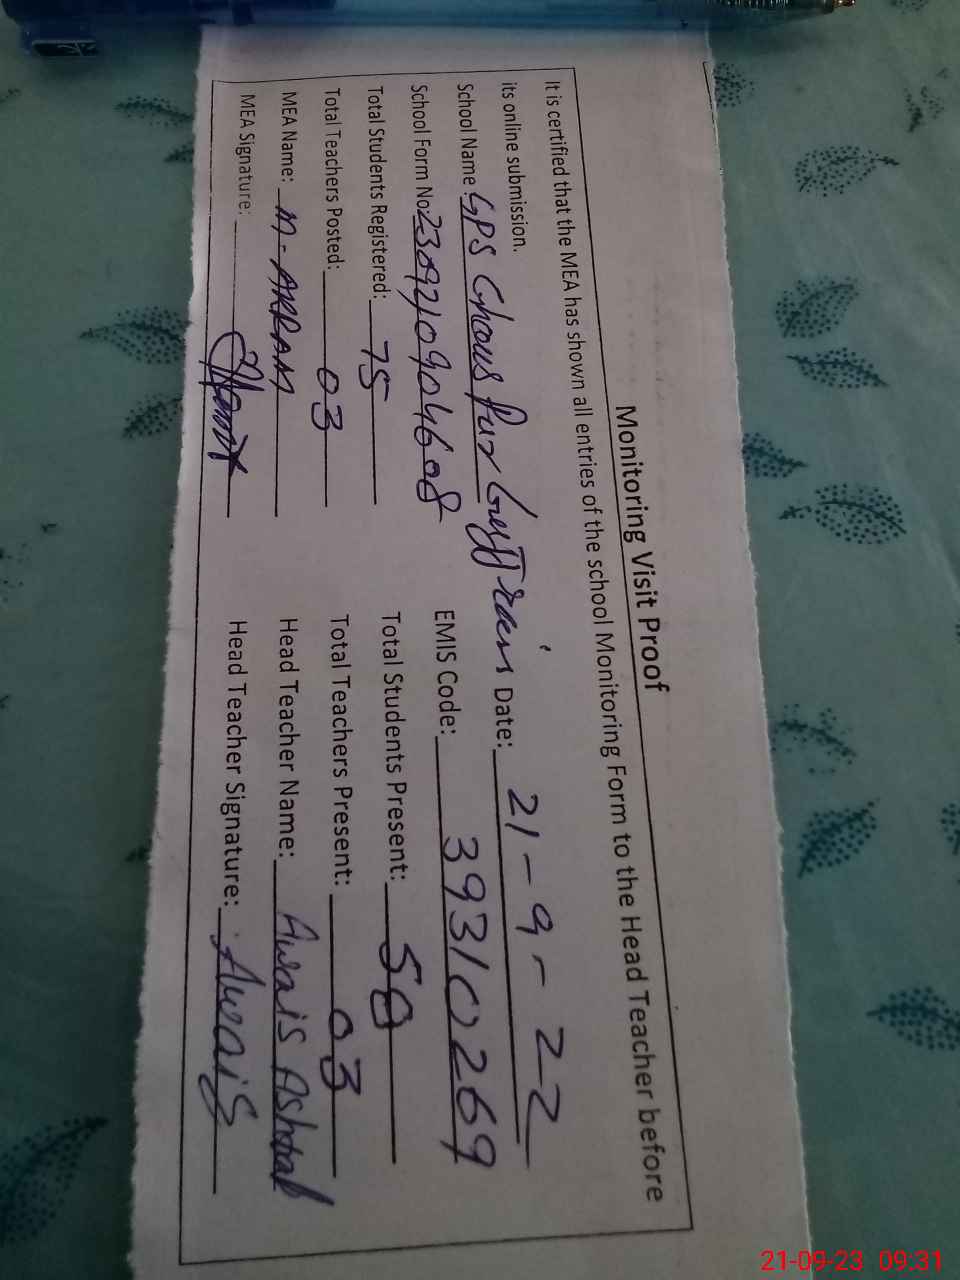 Monitoring Visit Proof
It is certified that the MEA has shown all entries of the school Monitoring Form to the Head Teacher before
its online submission.
School Name: GPS Ghous Pur Date: 21-9-22
School Form No: 2309210904608 EMIS Code: 39310269
Total Students Registered: 75 Total Students Present: 50
Total Teachers Posted: 03 Total Teachers Present: 03
MEA Name: M-AKRAM Head Teacher Name: Awais Ashraf
MEA Signature: Head Teacher Signature: Awais
21-09-23 09:31